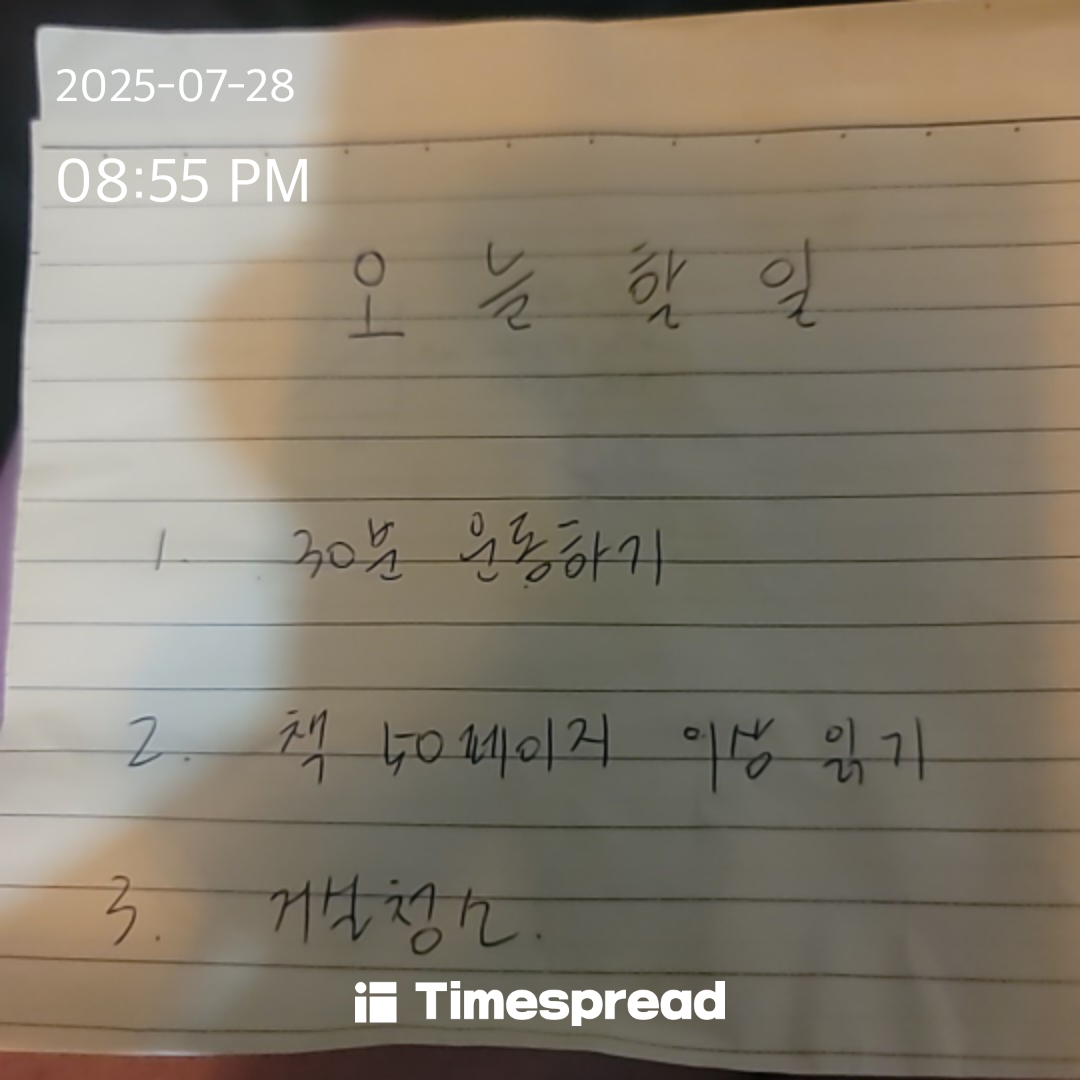 2025-07-28
08:55 PM
오늘 할 일
1. 30분 운동하기
2. 책 50페이지 이상 읽기
3. 거실청소.
Timespread